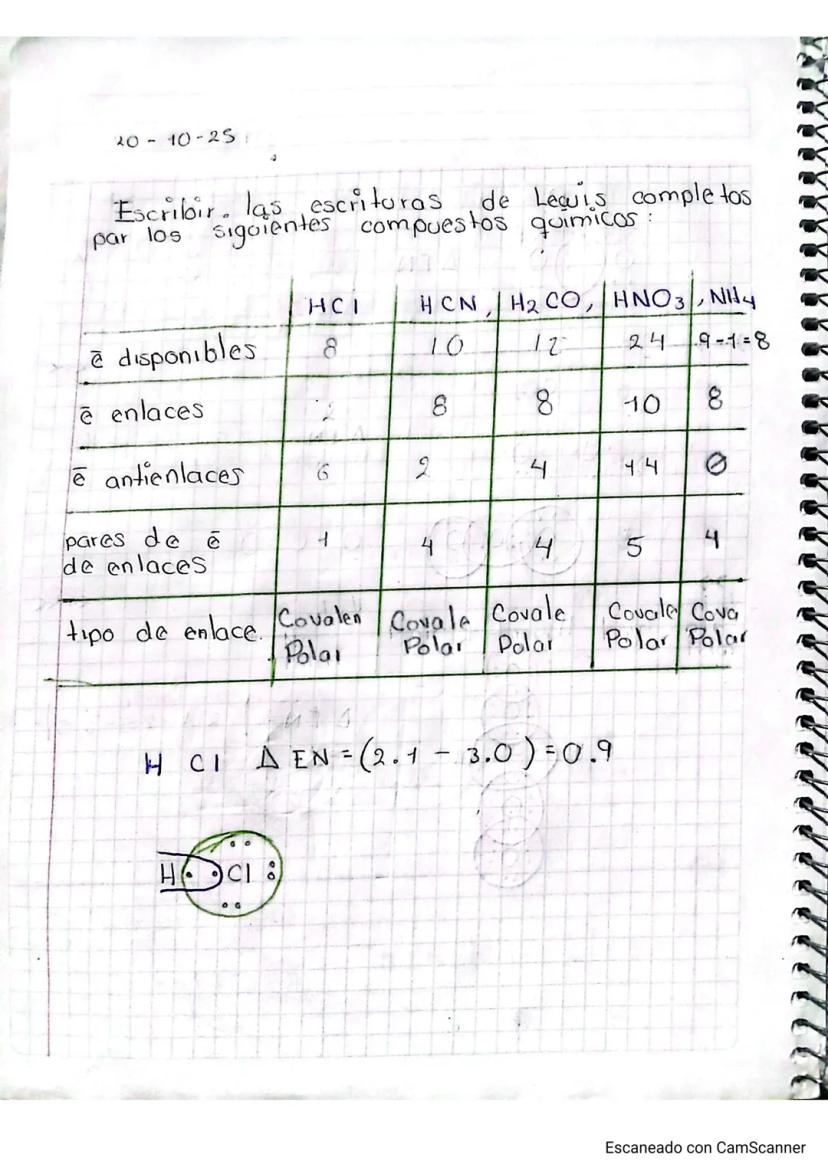 20 - 10 - 25
Escribir. las escrituras de Lewis completos
par los siguientes compuestos químicos:
HCl HCN, H2CO, HNO3, NH4
ē disponibles 8 10 12 24 9-1=8
ē enlaces 2 8 8 10 8
ē antienlaces 6 2 4 14 0
pares de ē 1 4 4 5 4
de enlaces
tipo de enlace. Covalen Covale Covale Covale Cova
Polar Polar Polar Polar Polar
H Cl Δ EN = (2.1 - 3.0) = 0.9
H Cl
Escaneado con CamScanner